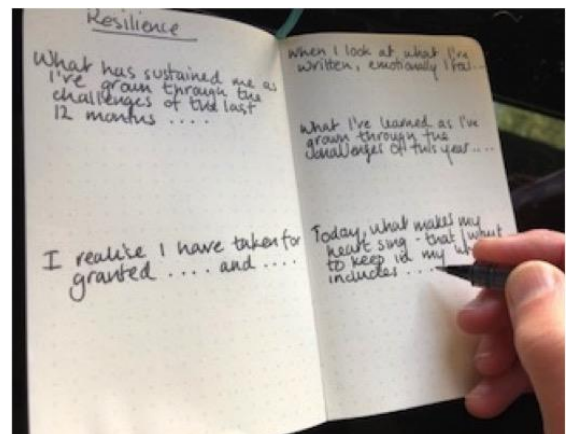 Resilience
What has sustained me as
I've grown through the
challenges of the last
12 months ....
I realise I have taken for
granted .... and ....
When I look at, what I've
written, emotionally I feel...
What I've learned as I've
grown through the
challenges of this year....
Today, what makes my
heart sing - that I want
to keep in my
includes ....